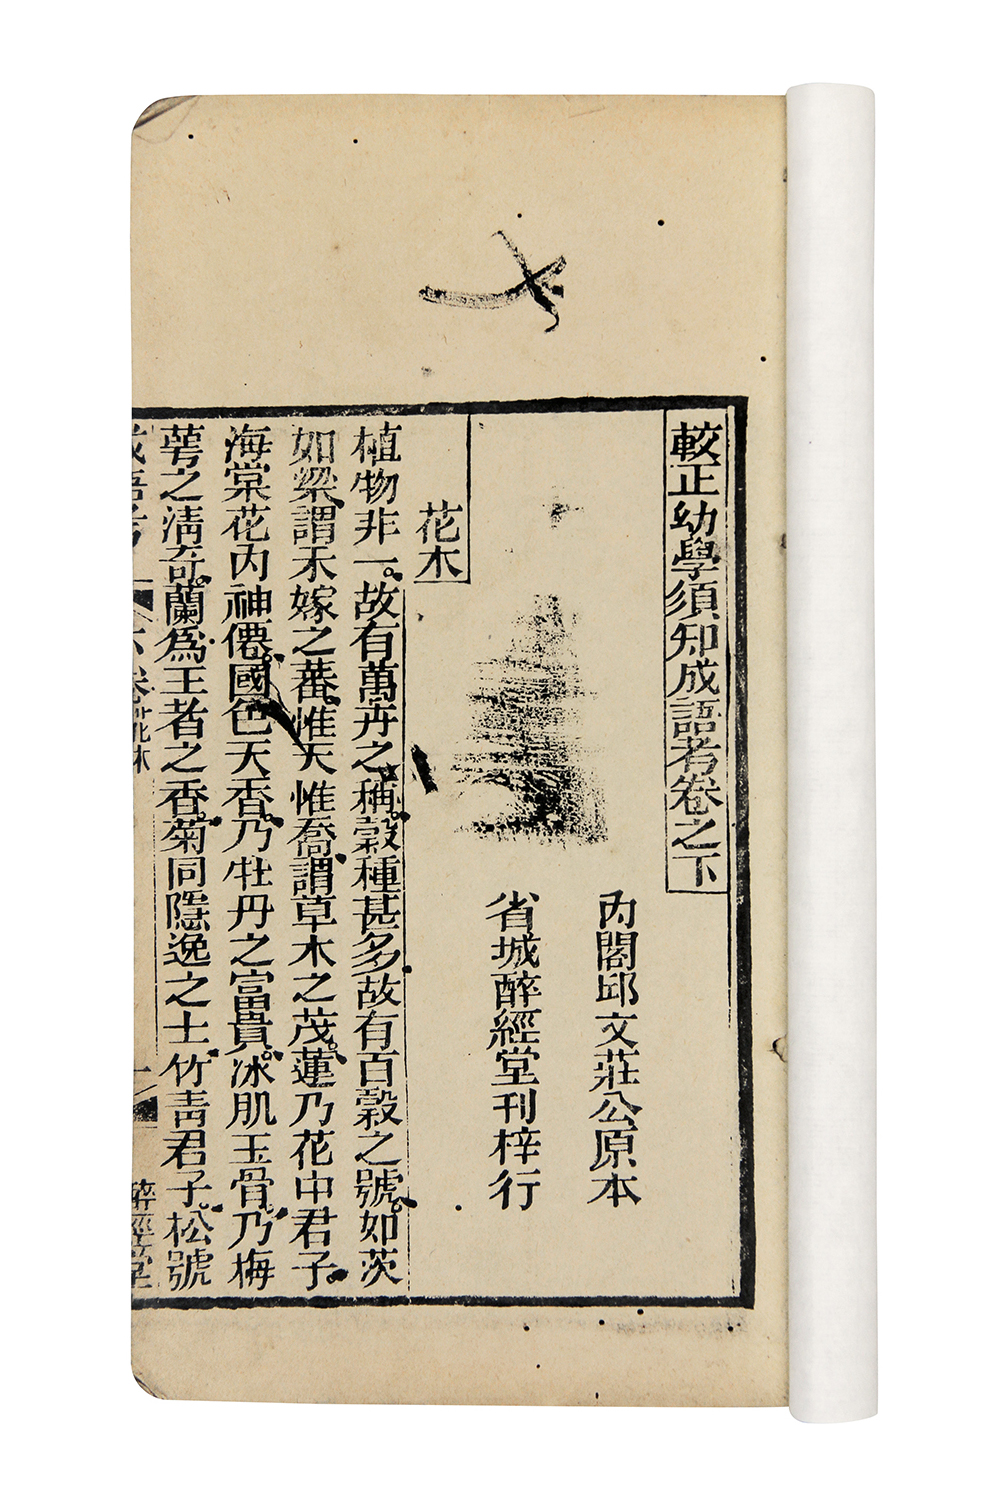 較正幼學須知成語考卷之下
內閣邱文莊公原本
省城醉經堂刊梓行
花木
植物非一。故有萬卉之稱。穀種甚多故有百穀之號。如茨
如梁謂禾嫁之蕃惟夭惟喬謂草木之茂。蓮乃花中君子
海棠花內神僊。國色天香。乃牡丹之富貴。冰肌玉骨。乃梅
萼之清奇。蘭為王者之香。菊同隱逸之士竹青君子。松號
成語考 卷花木 醉經堂